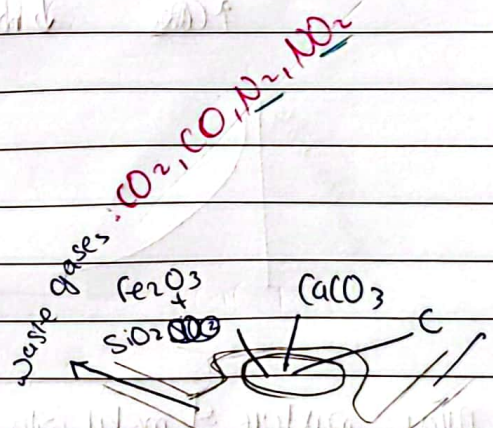 waste gases: CO2, CO, N2, NO2
Fe2O3
+
SiO2
CaCO3
C